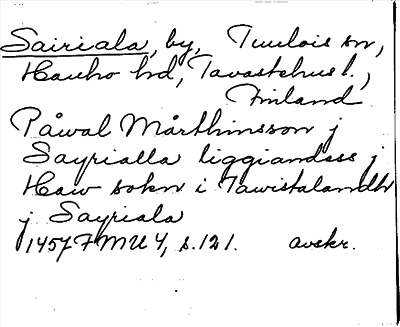 Sairiala, by, Tuulois sn,
Hauho hd, Tavastehus l.,
Finland
Påwal Mårthinsson j
Sayrialla liggiandess j
Haw sokn i Tawistalandh
j Sayriala
1457 FMU 4, s. 121. avskr.